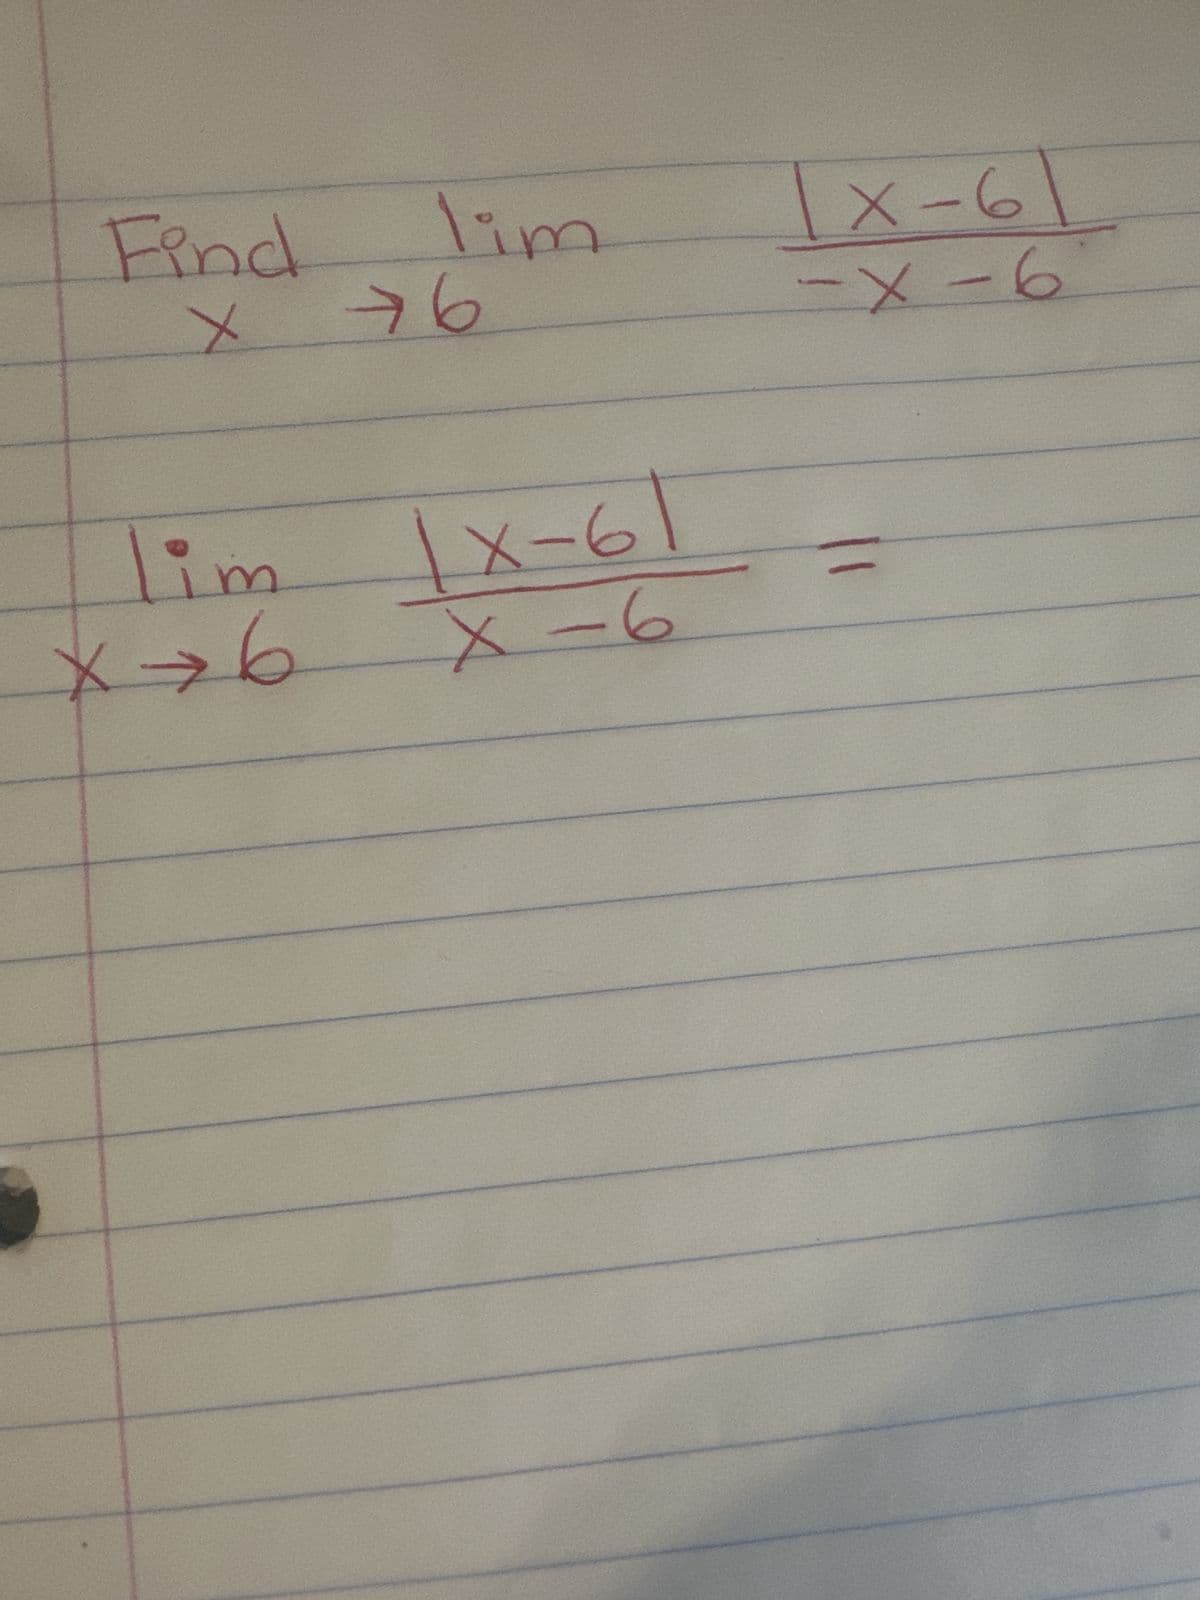 Find lim |x-6|
x →6 -x-6
lim |x-6| =
x→6 x-6